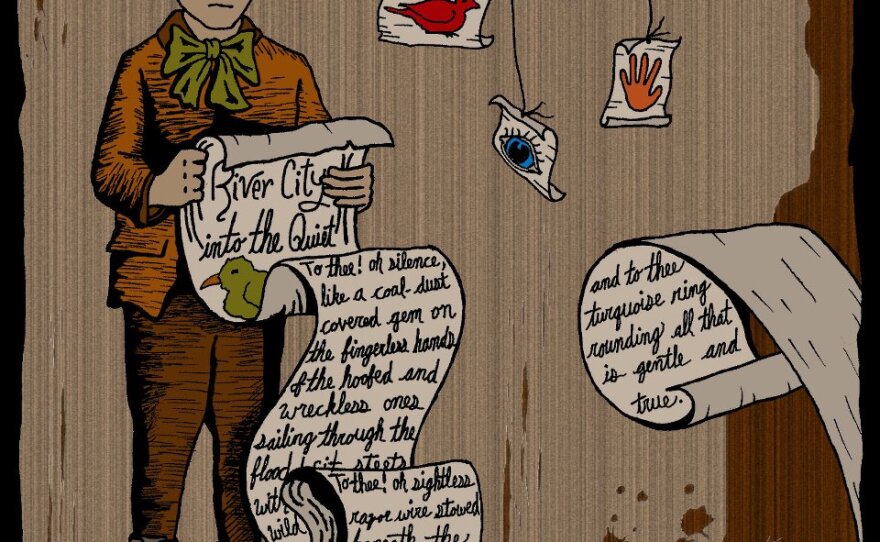 River City
into the Quiet
To thee! oh silence,
like a coal-dust
covered gem on
the fingerless hands
of the hoofed and
wreckless ones
sailing through the
flood cit steets
with
wild
To thee! oh sightless
razor wire stowed
beneath the
and to thee
turquoise ring
rounding all that
is gentle and
true.